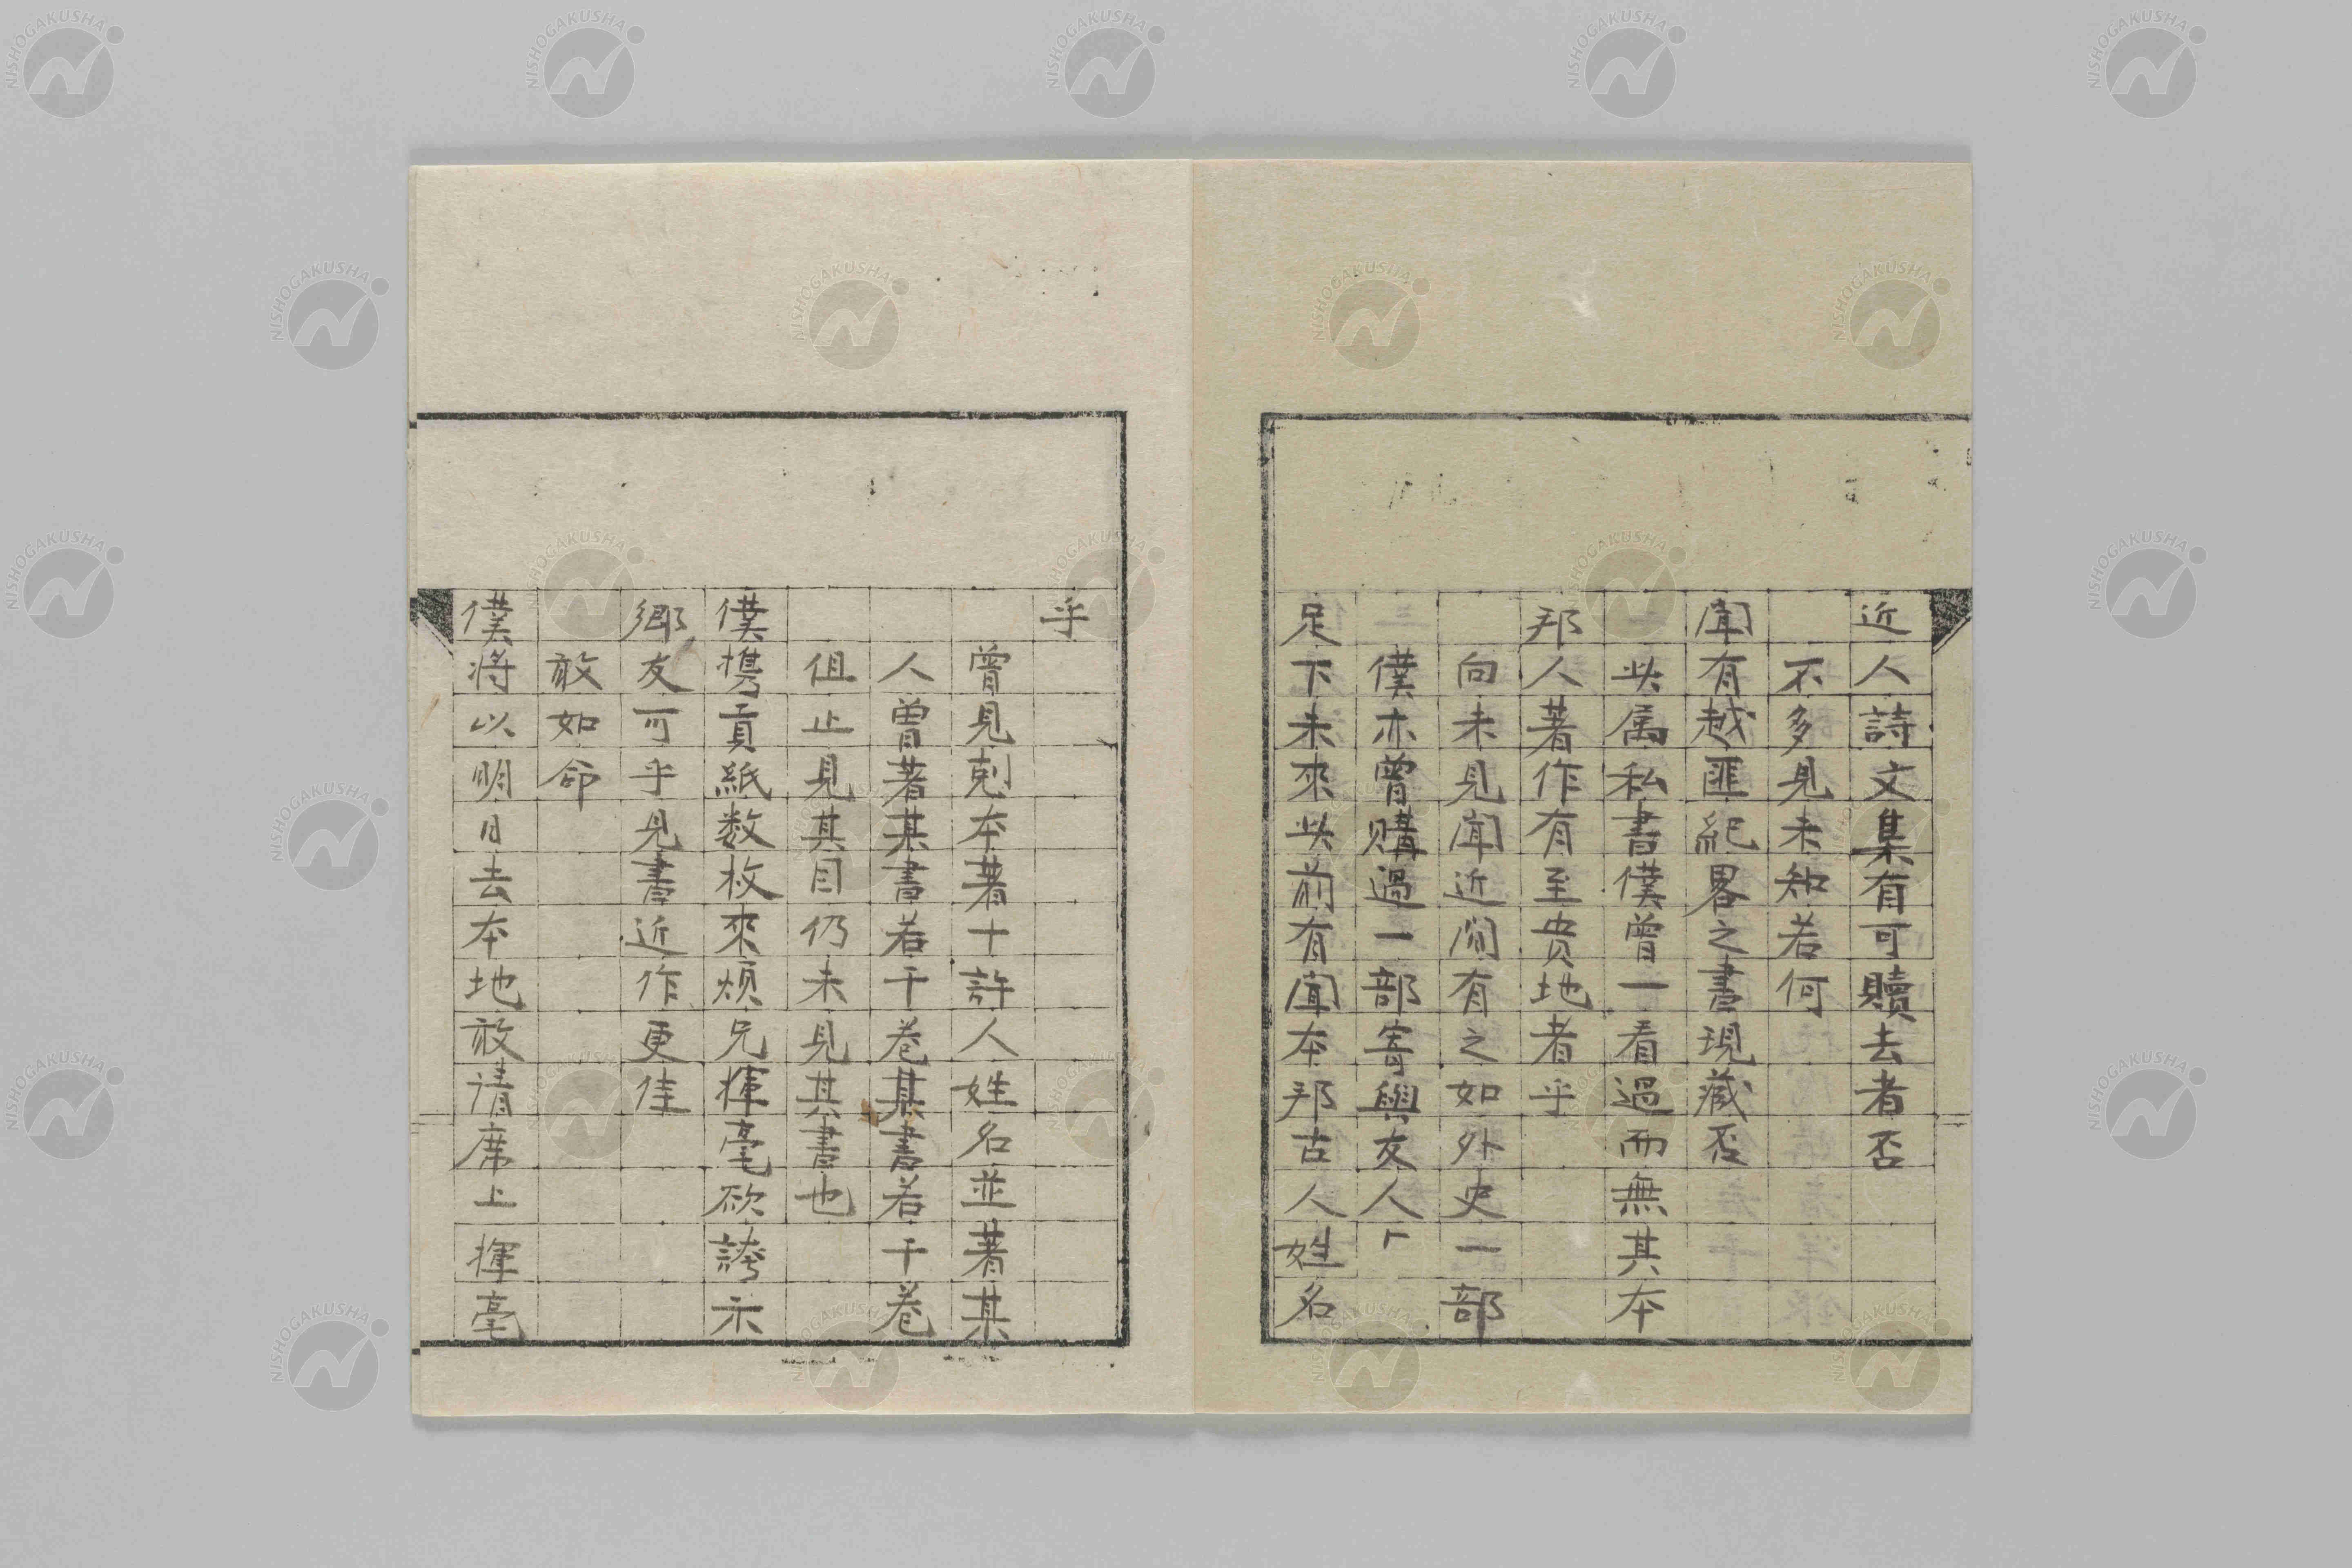 近人詩文集有可贖去者否
不多見未知若何
聞有越匪紀畧之書現藏否
此属私書僕曾一看過而無其本
邦人著作有至贵地者乎
向未見聞近间有之如外史一部
僕亦曾購過一部寄與友人
足下未來此前有聞本邦古人姓名
乎
曾見刻本著十許人姓名並著某
人曾著某書若干巻某書若干巻
但止見其目仍未見其書也
僕携貢紙数枚來煩兄揮毫欲誇示
郷友可乎見書近作更佳
敢如命
僕将以明日去本地敢请席上揮毫
NISHOGAKUSHA